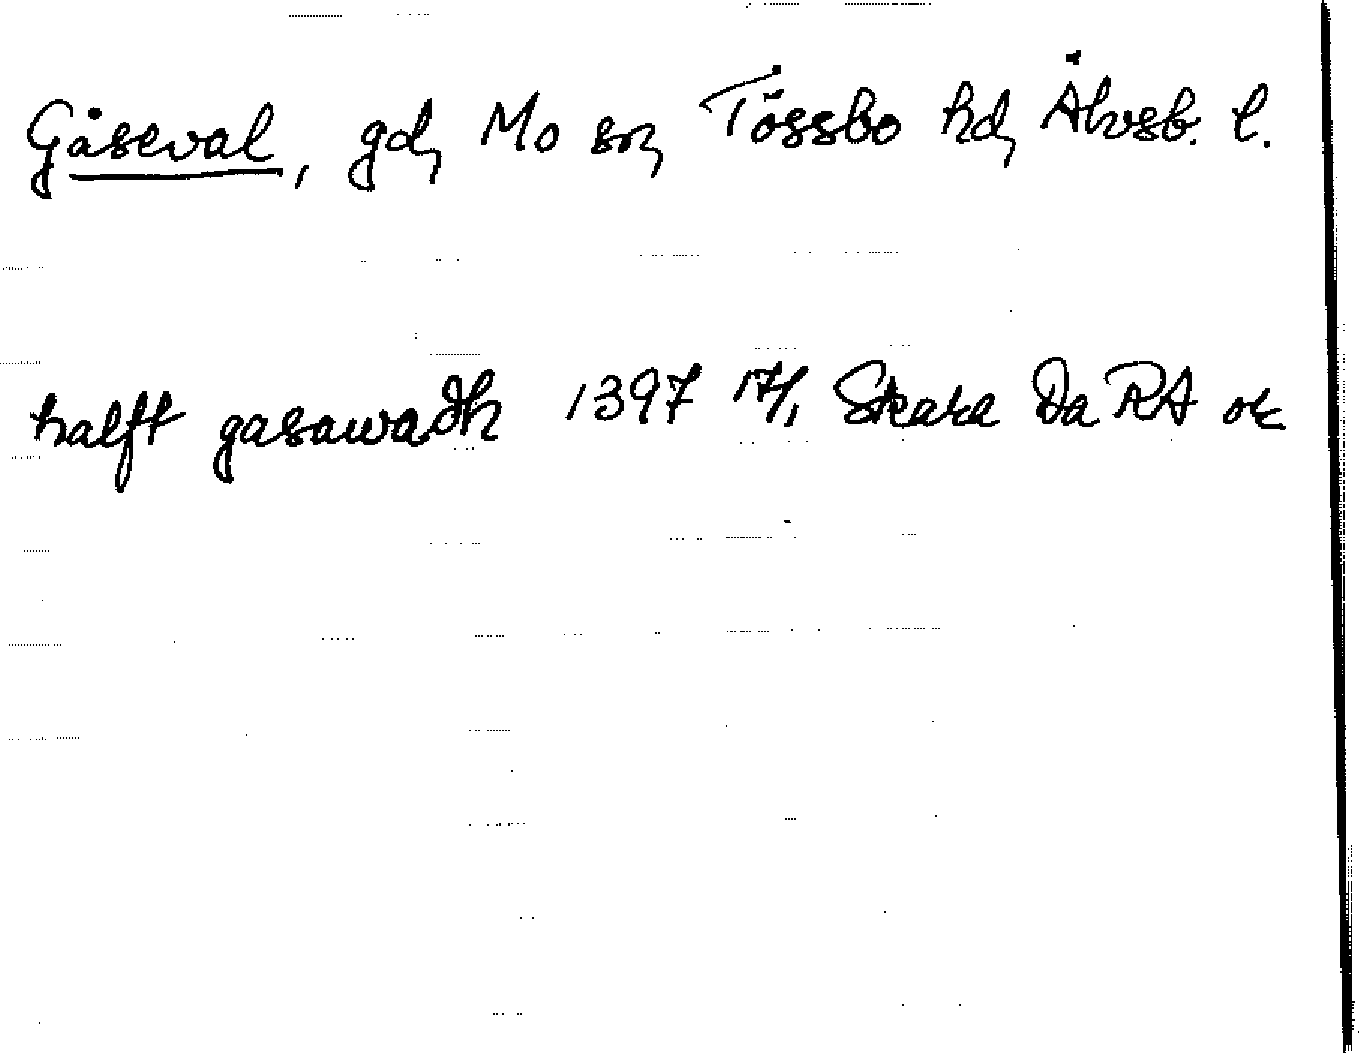 Gåseval, gd, Mo sn, Tössbo hd, Älvsb. l.
halft gasawadh 1397 17/1 Skara Da RA or